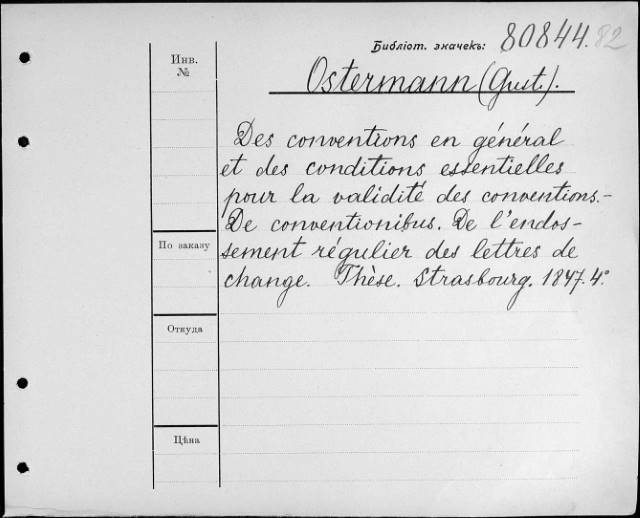 Библіот. значекъ: 80844.82
Инв. №
Ostermann (Gust.).
Des conventions en général
et des conditions essentielles
pour la validité des conventions.-
De conventionibus. De l'endos-
По заказу
sement régulier des lettres de
change. Thèse. Strasbourg. 1847. 4°
Откуда
Цѣна